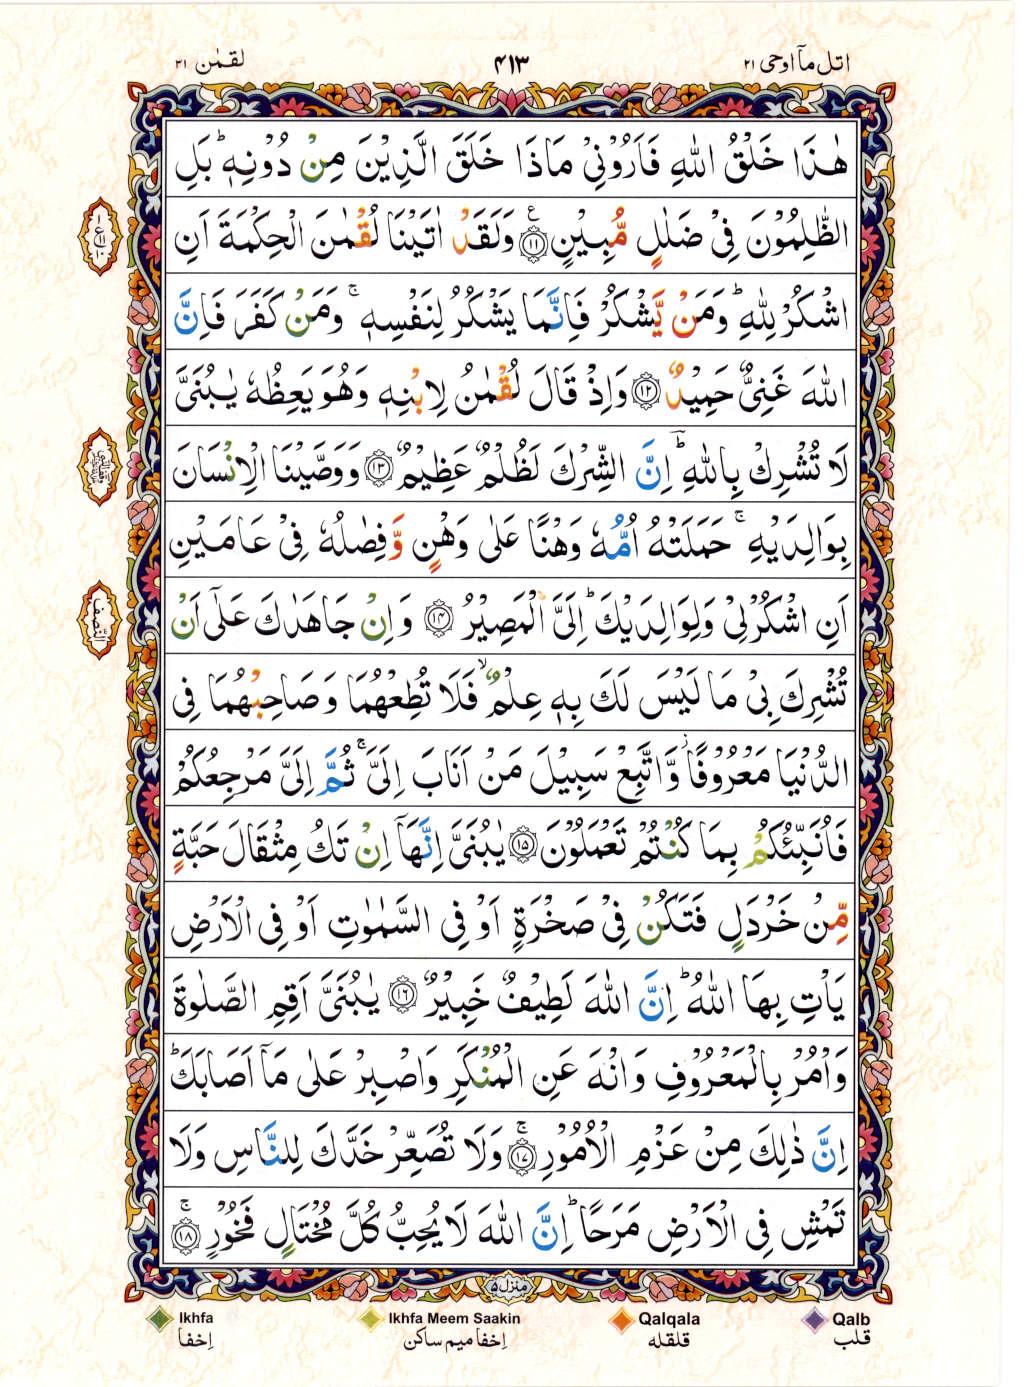 اتل مآ اوحی ۲۱
۴۱۳
لقمٰن ۳۱
هٰذَا خَلْقُ اللّٰهِ فَاَرُوْنِیْ مَاذَا خَلَقَ الَّذِیْنَ مِنْ دُوْنِهٖ ؕ بَلِ
الظّٰلِمُوْنَ فِیْ ضَلٰلٍ مُّبِیْنٍ ۱۱ وَلَقَدْ اٰتَیْنَا لُقْمٰنَ الْحِكْمَةَ اَنِ
اشْكُرْ لِلّٰهِ ؕ وَمَنْ یَّشْكُرْ فَاِنَّمَا یَشْكُرُ لِنَفْسِهٖ ۚ وَمَنْ كَفَرَ فَاِنَّ
اللّٰهَ غَنِیٌّ حَمِیْدٌ ۱۲ وَاِذْ قَالَ لُقْمٰنُ لِابْنِهٖ وَهُوَ یَعِظُهٗ یٰبُنَیَّ
لَا تُشْرِكْ بِاللّٰهِ ؕ اِنَّ الشِّرْكَ لَظُلْمٌ عَظِیْمٌ ۱۳ وَوَصَّیْنَا الْاِنْسَانَ
بِوَالِدَیْهِ ۚ حَمَلَتْهُ اُمُّهٗ وَهْنًا عَلٰی وَهْنٍ وَّفِصٰلُهٗ فِیْ عَامَیْنِ
اَنِ اشْكُرْ لِیْ وَلِوَالِدَیْكَ ؕ اِلَیَّ الْمَصِیْرُ ۱۴ وَاِنْ جَاهَدٰكَ عَلٰۤی اَنْ
النصف
تُشْرِكَ بِیْ مَا لَیْسَ لَكَ بِهٖ عِلْمٌ ۙ فَلَا تُطِعْهُمَا وَصَاحِبْهُمَا فِی
الدُّنْیَا مَعْرُوْفًا ؗ وَّاتَّبِعْ سَبِیْلَ مَنْ اَنَابَ اِلَیَّ ۚ ثُمَّ اِلَیَّ مَرْجِعُكُمْ
فَاُنَبِّئُكُمْ بِمَا كُنْتُمْ تَعْمَلُوْنَ ۱۵ یٰبُنَیَّ اِنَّهَاۤ اِنْ تَكُ مِثْقَالَ حَبَّةٍ
مِّنْ خَرْدَلٍ فَتَكُنْ فِیْ صَخْرَةٍ اَوْ فِی السَّمٰوٰتِ اَوْ فِی الْاَرْضِ
یَاْتِ بِهَا اللّٰهُ ؕ اِنَّ اللّٰهَ لَطِیْفٌ خَبِیْرٌ ۱۶ یٰبُنَیَّ اَقِمِ الصَّلٰوةَ
وَاْمُرْ بِالْمَعْرُوْفِ وَانْهَ عَنِ الْمُنْكَرِ وَاصْبِرْ عَلٰی مَاۤ اَصَابَكَ ؕ
اِنَّ ذٰلِكَ مِنْ عَزْمِ الْاُمُوْرِ ۚ ۱۷ وَلَا تُصَعِّرْ خَدَّكَ لِلنَّاسِ وَلَا
تَمْشِ فِی الْاَرْضِ مَرَحًا ؕ اِنَّ اللّٰهَ لَا یُحِبُّ كُلَّ مُخْتَالٍ فَخُوْرٍ ۚ ۱۸
منزل ۵
Ikhfa
Ikhfa Meem Saakin
Qalqala
Qalb
اِخفا
اِخفا میم ساکن
قلقله
قلب